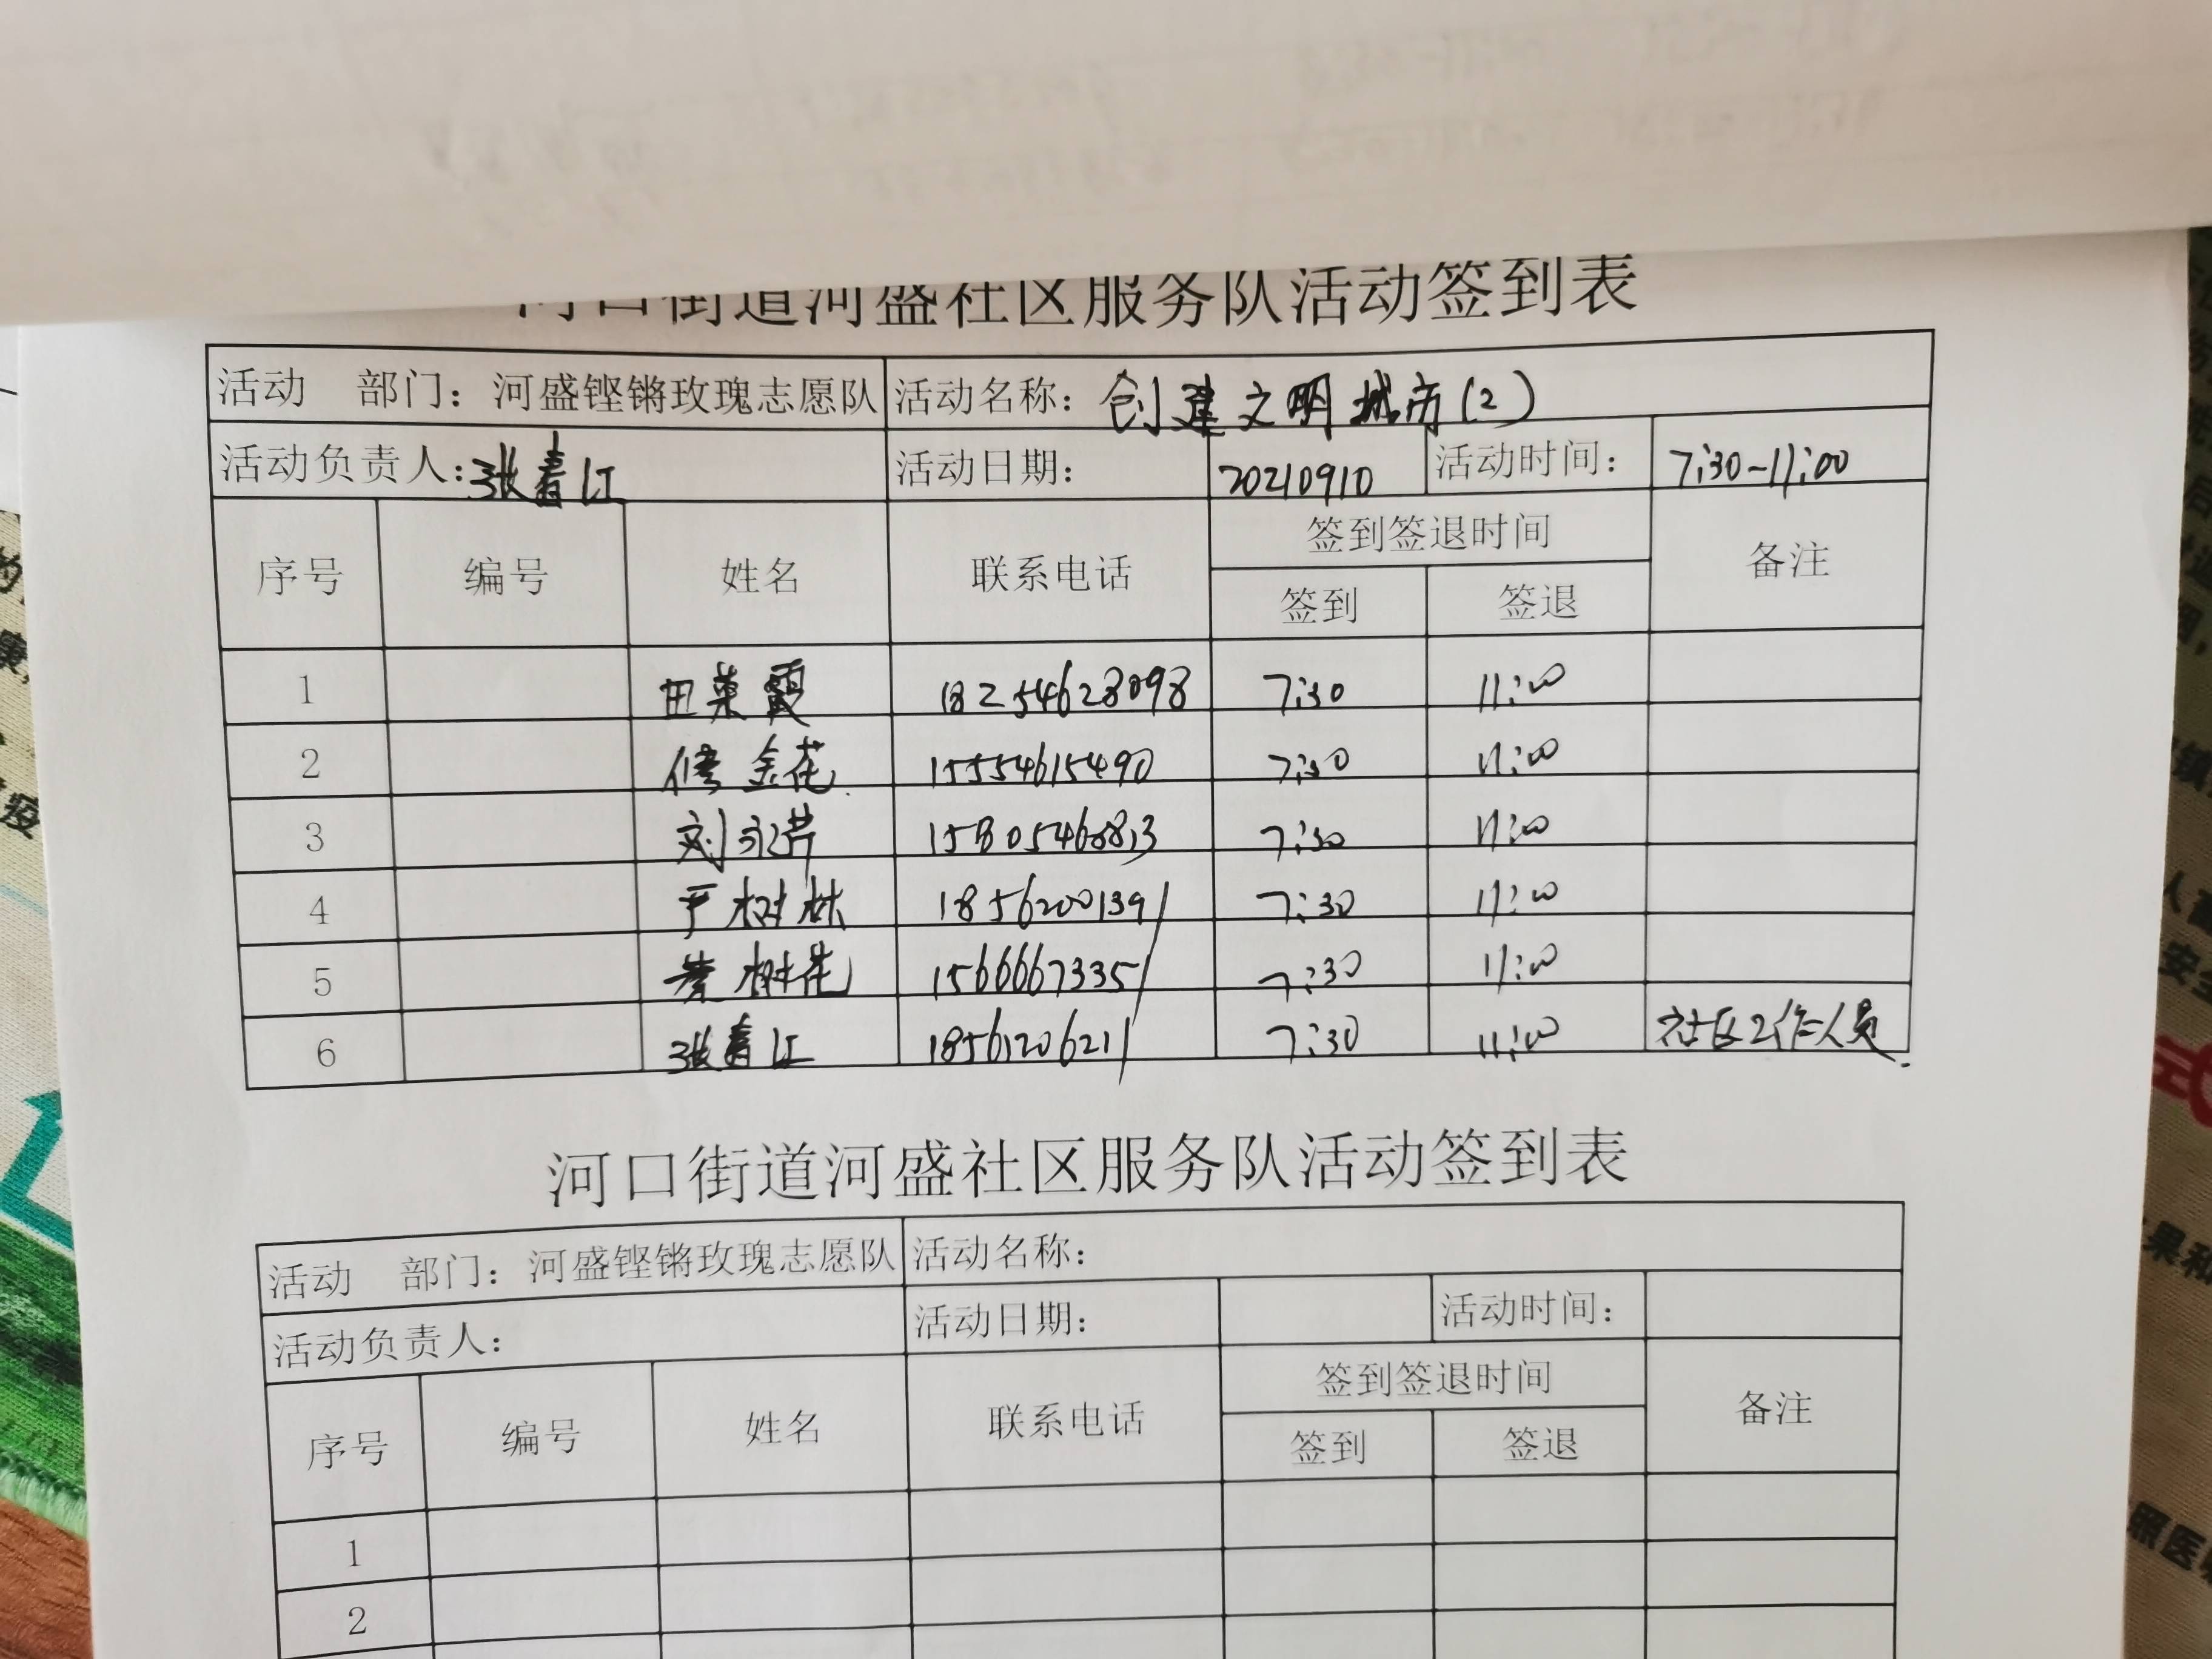 河口街道河盛社区服务队活动签到表
活动 部门：河盛铿锵玫瑰志愿队 活动名称：创建文明城市(2)
活动负责人：张春江 活动日期： 20210910 活动时间： 7:30-11:00
序号 编号 姓名 联系电话 签到签退时间 备注
签到 签退
1 田荣霞 18254628098 7:30 11:00
2 修金花 15554615490 7:30 11:00
3 刘永芹 7:30 11:00
4 严树林 18562001391 7:30 11:00
5 树花 15666673351 7:30 11:00
6 张春江 18561206211 7:30 11:00 社区工作人员
河口街道河盛社区服务队活动签到表
活动 部门：河盛铿锵玫瑰志愿队 活动名称：
活动负责人： 活动日期： 活动时间：
序号 编号 姓名 联系电话 签到签退时间 备注
签到 签退
1
2